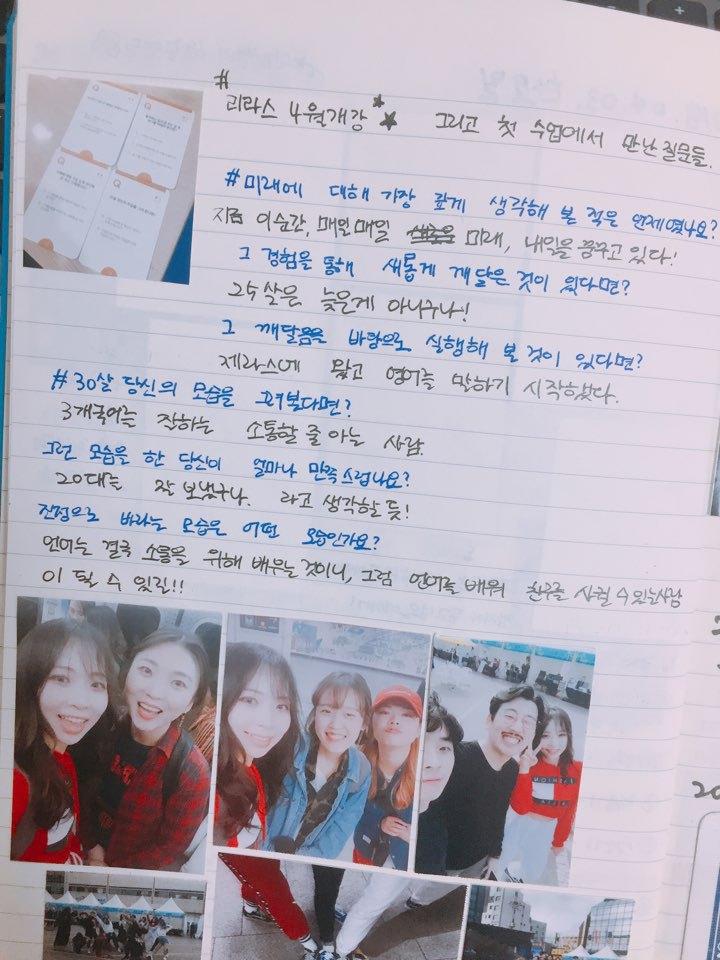 #
괴라스 4월개강 그리고 첫 수업에서 만난 질문들.
#미래에 대해 가장 깊게 생각해 본 적은 언제였나요?
지금 이순간, 매일매일 미래, 내일을 꿈꾸고 있다!
그 경험을 통해 새롭게 깨달은 것이 있다면?
25살은 늦은게 아니구나!
그 깨달음을 바탕으로 실행해 본 것이 있다면?
제라스에 왔고 영어를 말하기 시작했다.
#30살 당신의 모습을 그려본다면?
3개국어는 잘하는 소통할 줄 아는 사람.
그런 모습을 한 당신이 얼마나 만족스럽나요?
20대는 잘 보냈구나. 라고 생각할 듯!
진정으로 바라는 모습은 어떤 모습인가요?
언어는 결국 소통을 위해 배우는 것이니, 그럼 언어를 배워 친구를 사귈 수 있는사람
이 될 수 있길!!